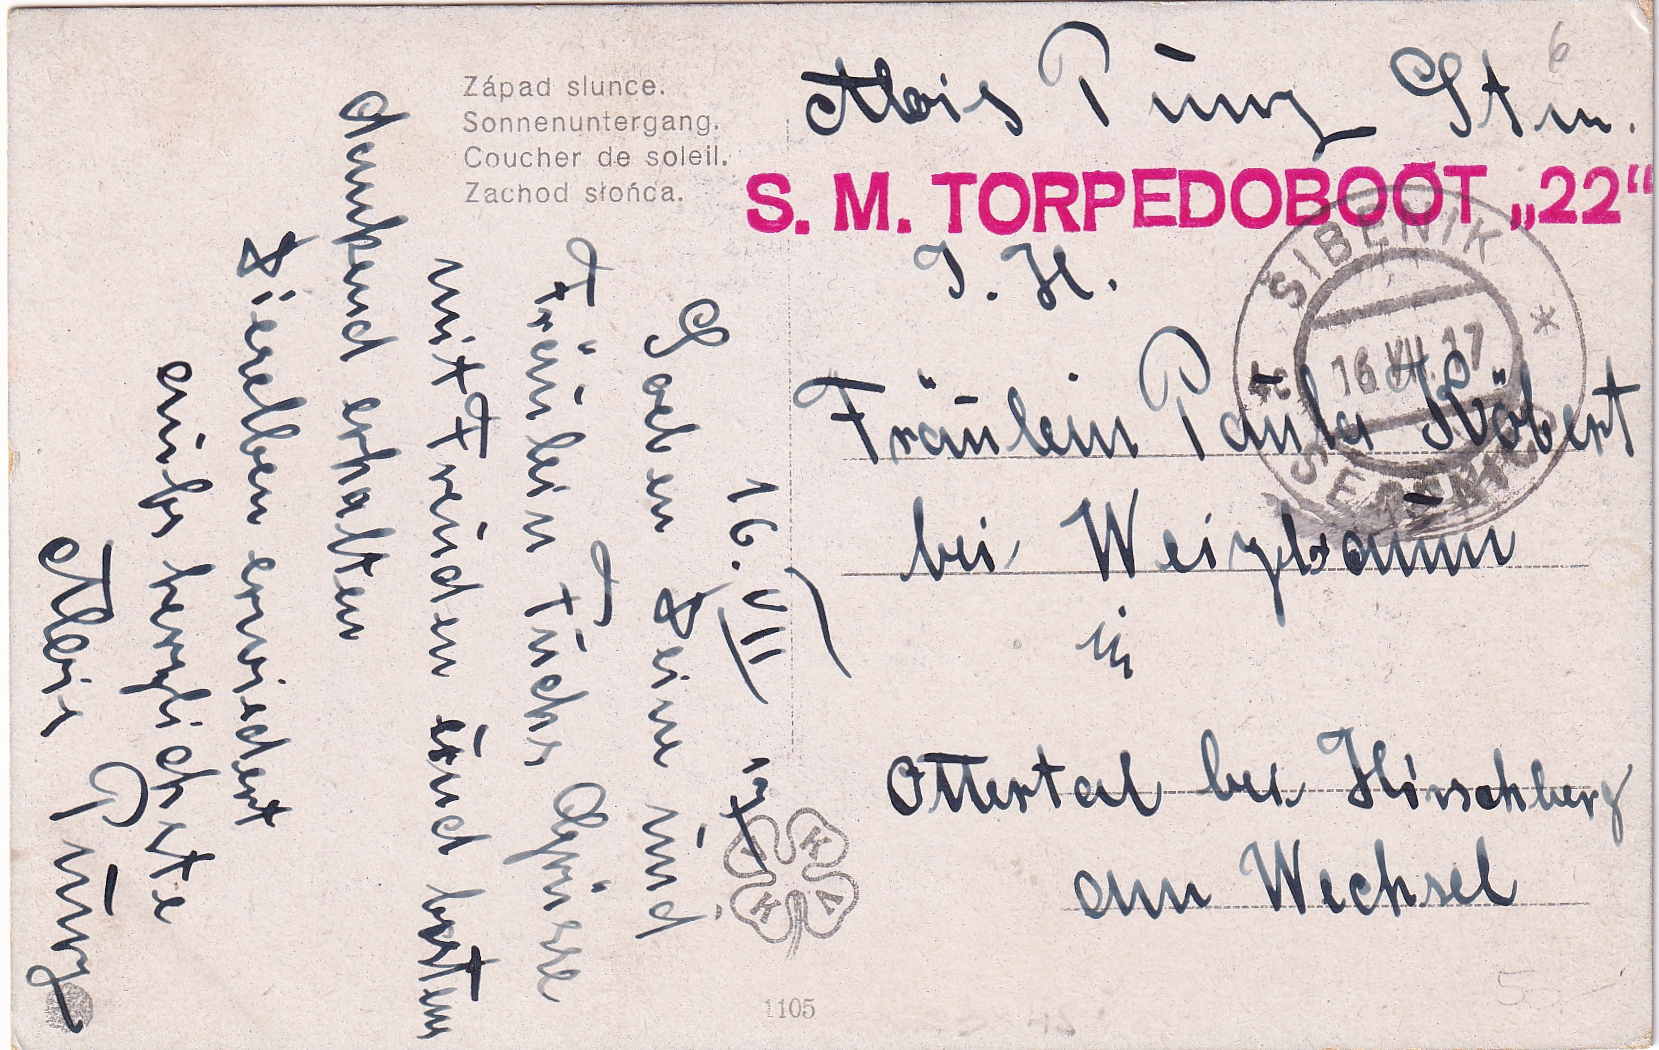 Západ slunce.
Sonnenuntergang.
Coucher de soleil.
Zachod słońca.
Alois Pūnz Stm.
S. M. TORPEDOBOOT „22“
I. H.
ŠIBENIK
16.VII.17
Fräulein Paula Köbert
bei Weizbaūm
in
Ottertal bei Hirschberg
am Wechsel
16. VII 17
Soeben Deine ūnd
Fräulein Fūchs Grüsse
mit Freūden ūnd bestem
dankend erhalten
Dieselben erwiedert
aūfs herzlichste
Alois Pūnz
K
V
K
1105
6